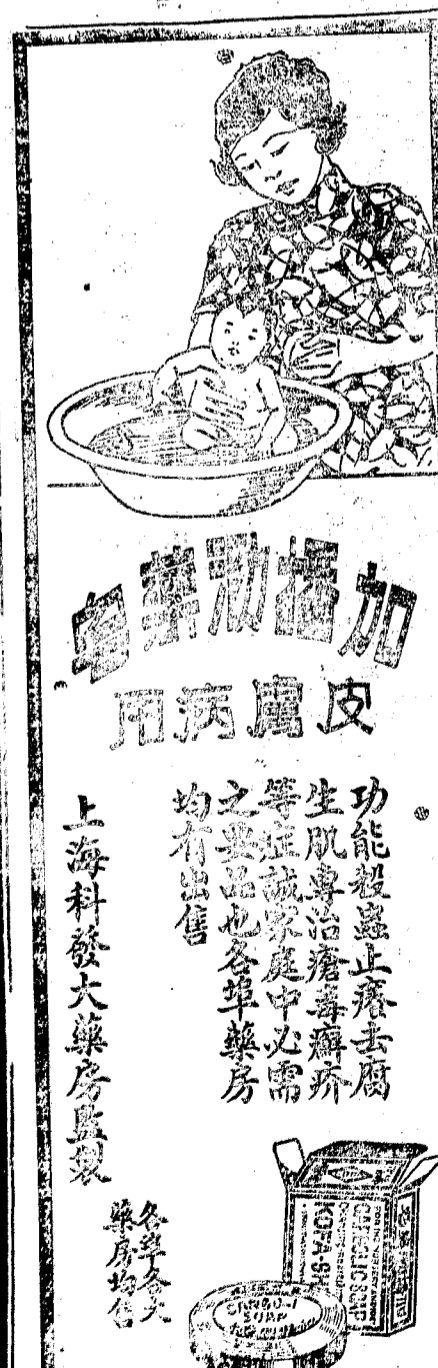 加播泐藥皂
皮膚病用
功能殺蟲止癢去腐
生肌專治瘡毒癬疥
等症誠家庭中必需
之要品也各埠藥房
均有出售
上海科發大藥房監製
各埠各大
藥房均售
CARBOLIC SOAP
KOFA-SH
SOAP